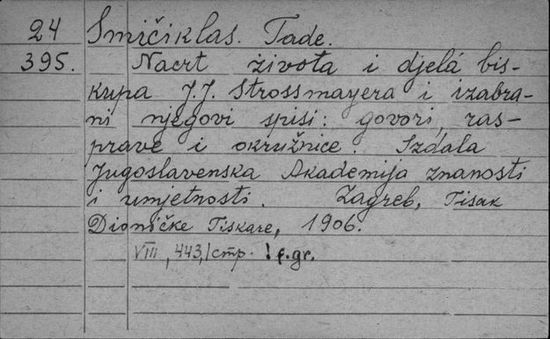 24 Smičiklas. Tade.
395. Nacrt života i djelá bis-
kupa J.J. Strossmayera i izabra-
ni njegovi spisi: govori, ras-
prave i okružnice. Izdala
Jugoslavenska Akademija znanosti
i umjetnosti. Zagreb, Tisak
Dioničke Tiskare, 1906.
VIII, 443, стр. 1 f. gr.